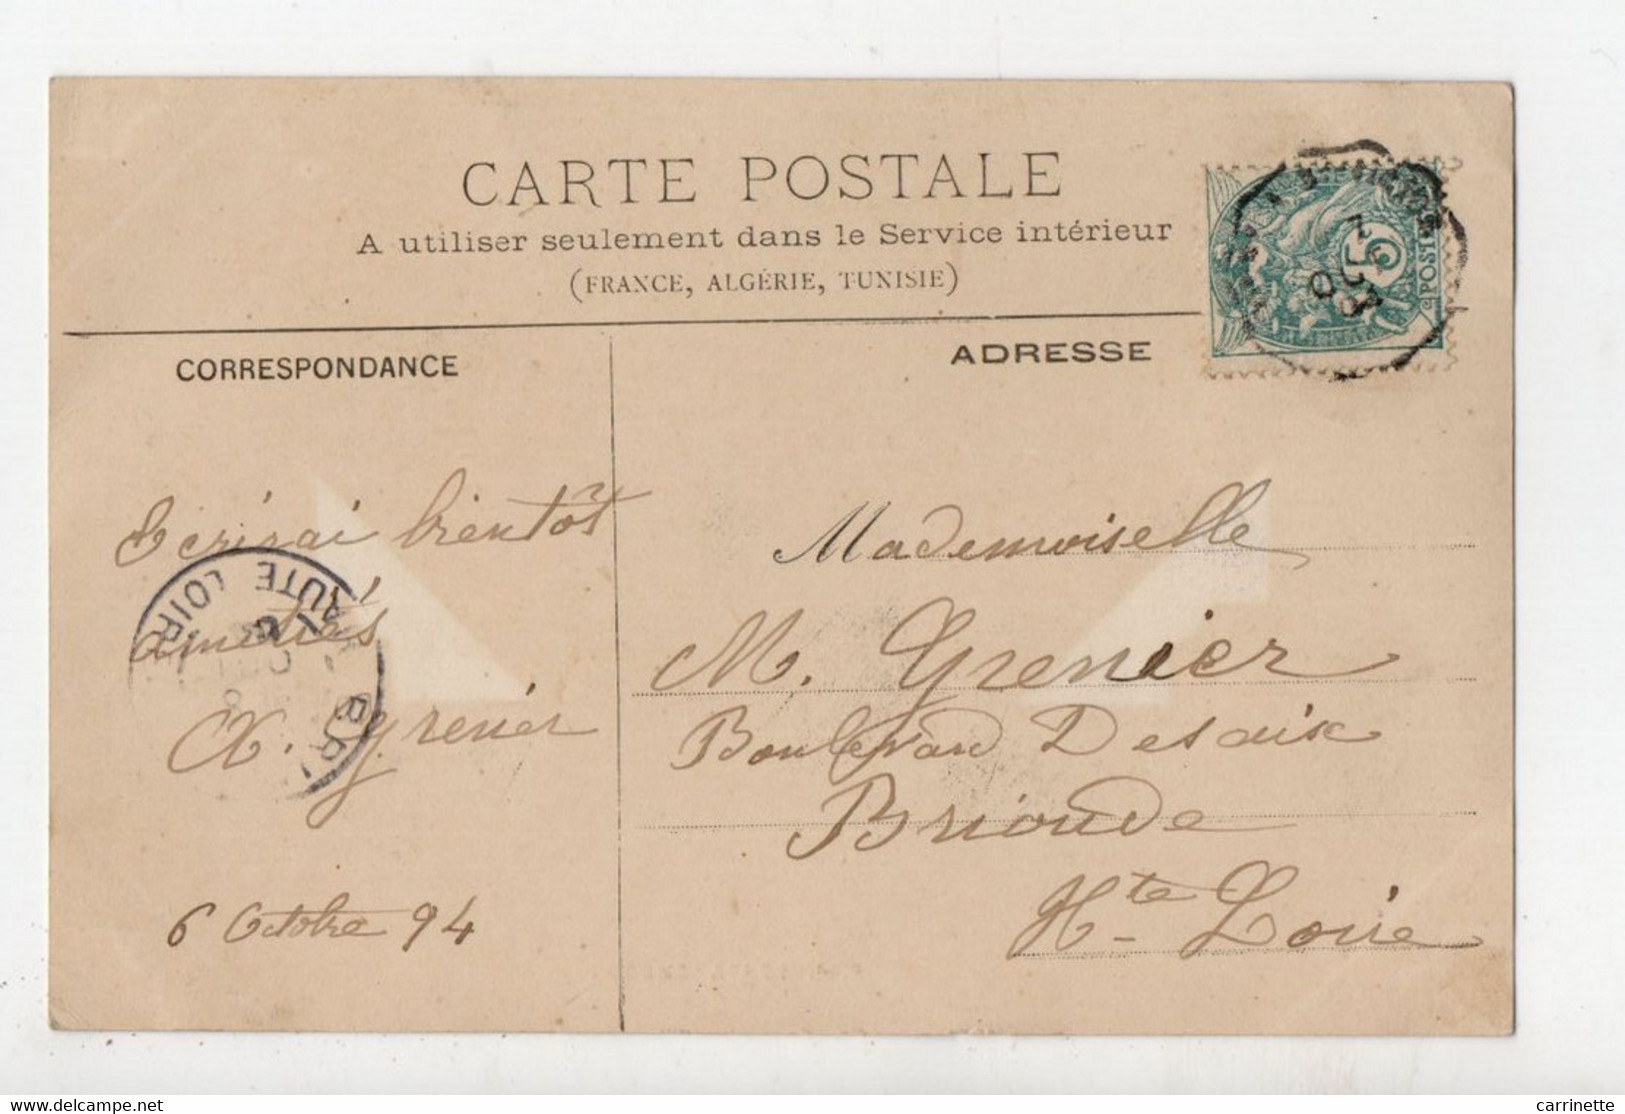 CARTE POSTALE
A utiliser seulement dans le Service intérieur
(FRANCE, ALGÉRIE, TUNISIE)
CORRESPONDANCE
ADRESSE
5
POSTE
Ecrirai bientôt
amitiés
X. Grenier
6 Octobre 94
HAUTE LOIR
BRI
Mademoiselle
M. Grenier
Boulevard Desaix
Brioude
Hte Loire
delcampe.net
carrinette